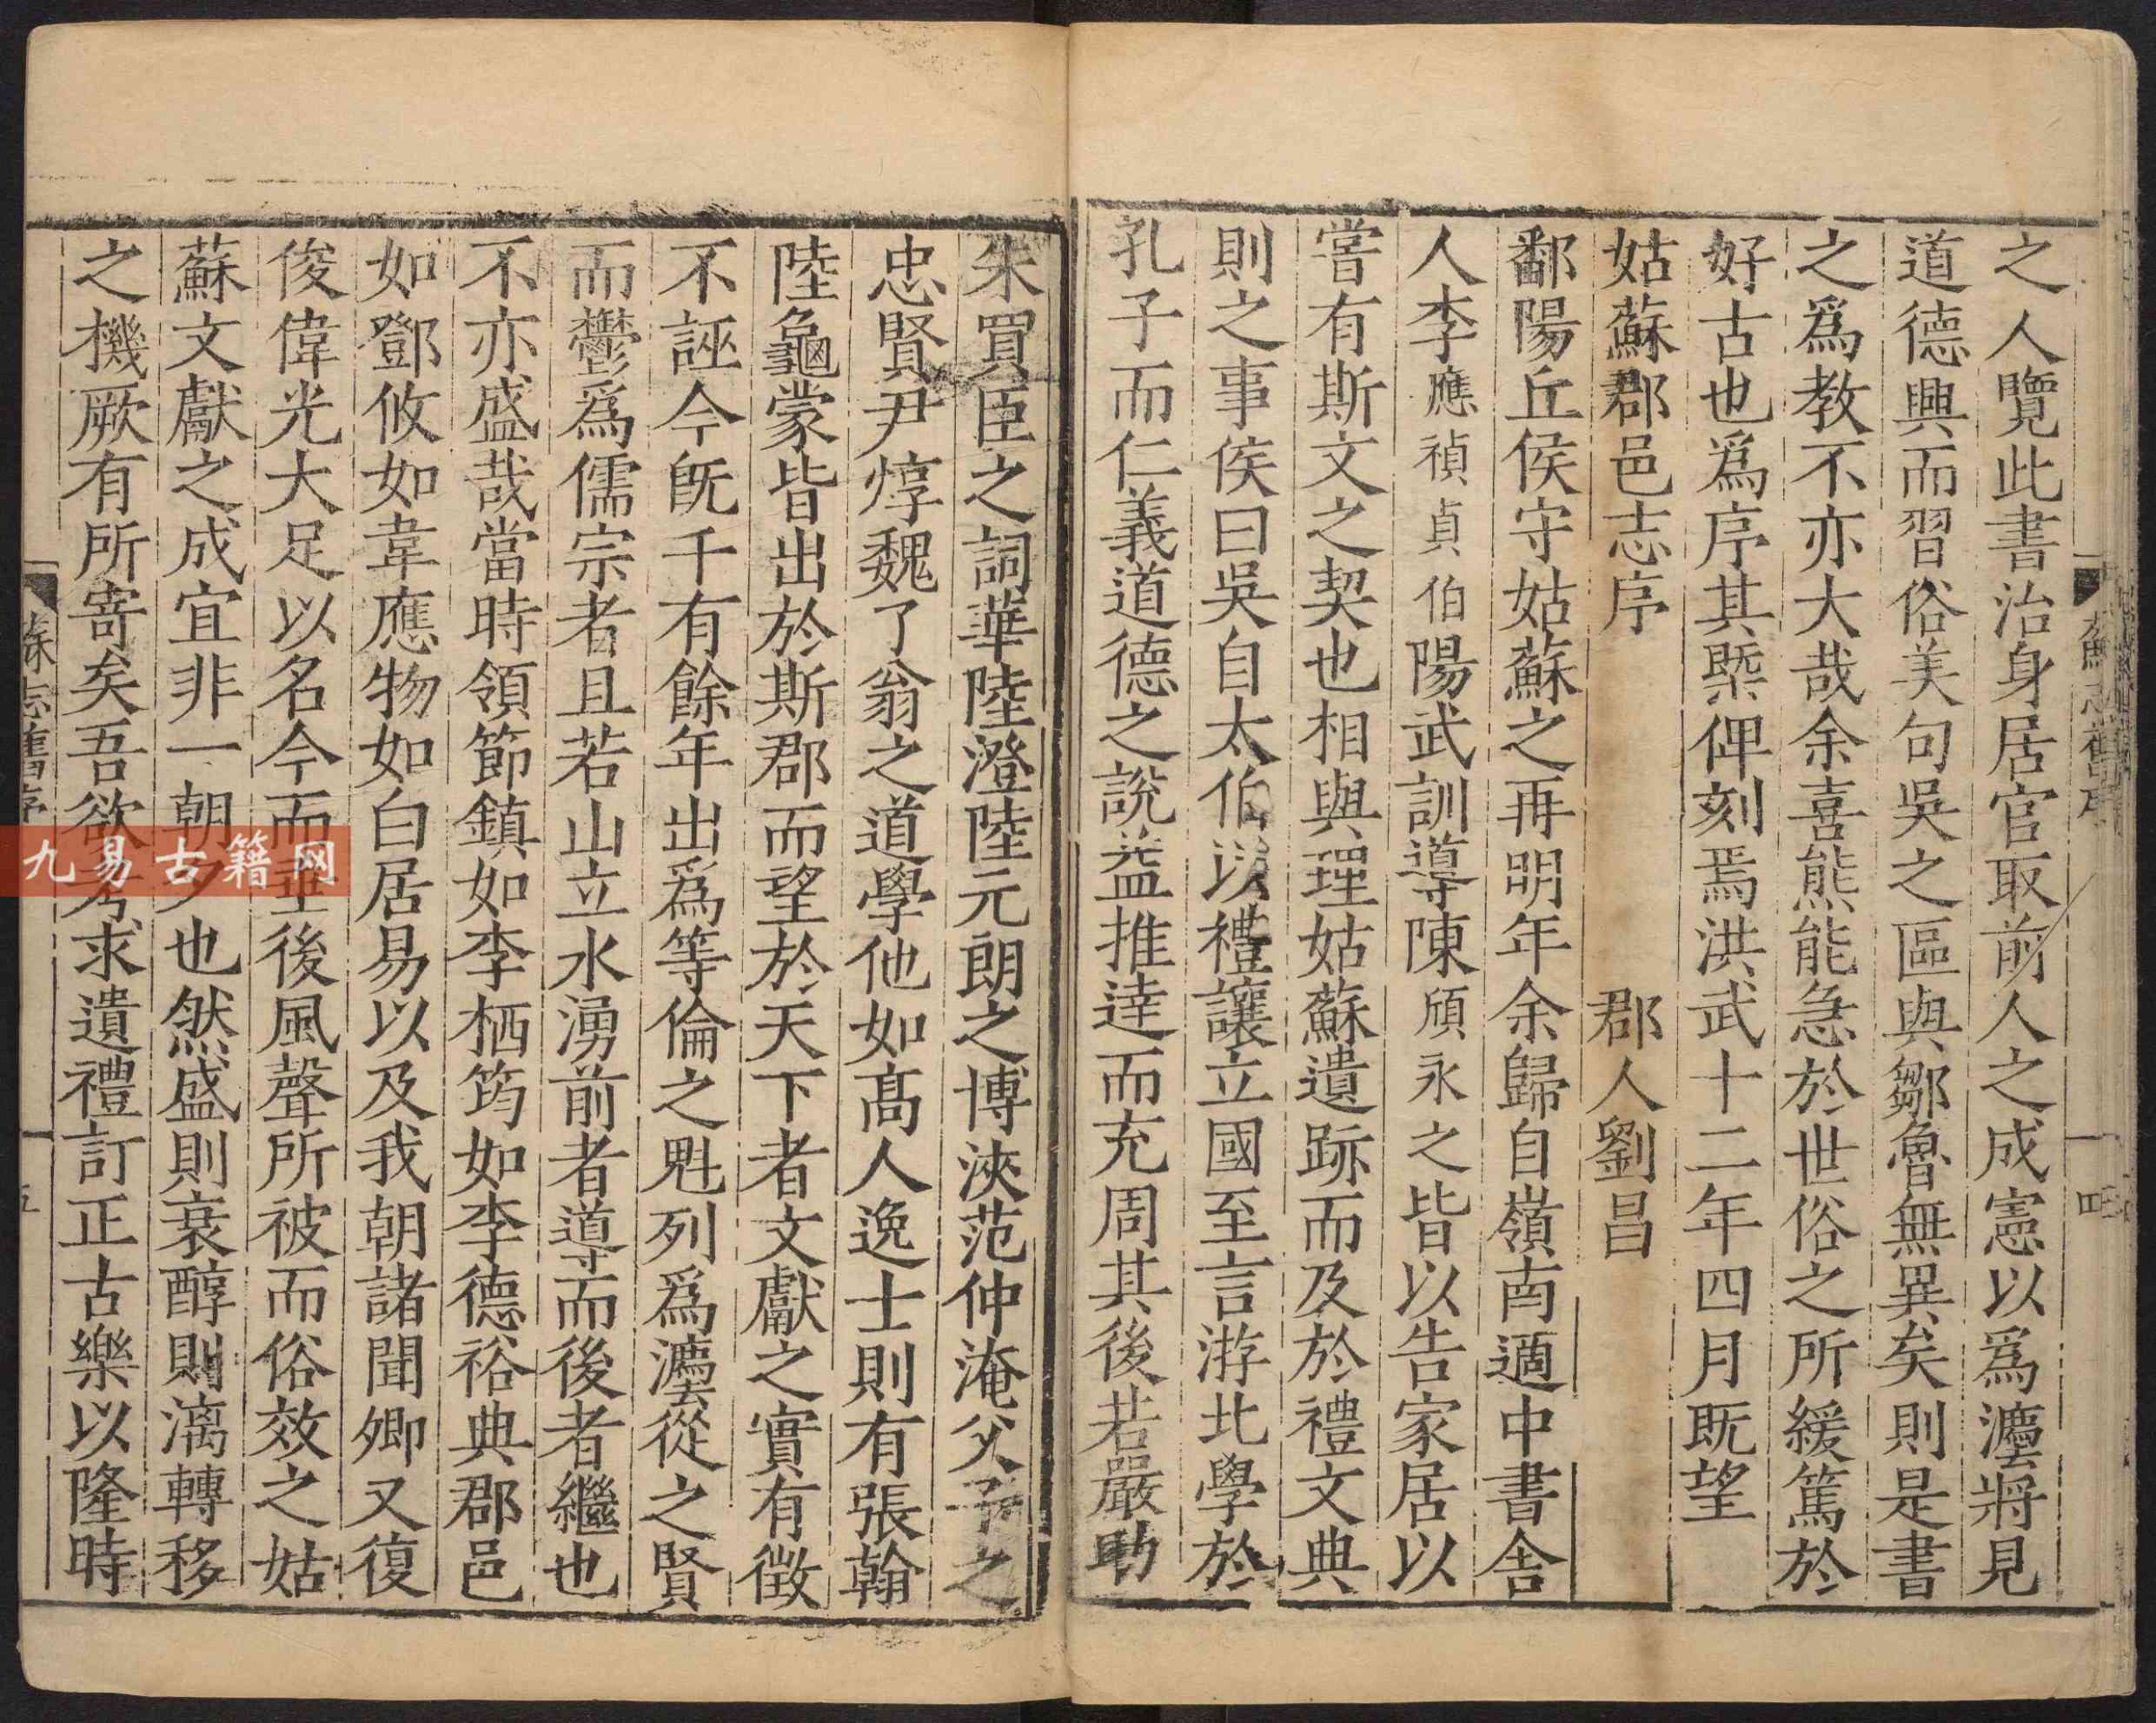 之人覽此書治身居官取前人之成憲以爲灋將見
道德興而習俗美句吳之區與鄒魯無異矣則是書
之爲教不亦大哉余喜熊能急於世俗之所緩篤於
好古也爲序其槩俾刻焉洪武十二年四月既望
姑蘇郡邑志序　郡人劉昌
鄱陽丘侯守姑蘇之再明年余歸自嶺南適中書舍
人李應禎貞伯陽武訓導陳頎永之皆以告家居以
嘗有斯文之契也相與理姑蘇遺跡而及於禮文典
則之事侯曰吳自太伯以禮讓立國至言游北學於
孔子而仁義道德之說益推達而充周其後若嚴助
朱買臣之詞華陸澄陸元朗之博浹范仲淹父子之
忠賢尹焞魏了翁之道學他如髙人逸士則有張翰
陸龜蒙皆出於斯郡而望於天下者文獻之實有徵
不誣今旣千有餘年出爲等倫之魁列爲灋從之賢
而鬱爲儒宗者且若山立水湧前者導而後者繼也
不亦盛哉當時領節鎮如李栖筠如李德裕典郡邑
如鄧攸如韋應物如白居易以及我朝諸聞卿又復
俊偉光大足以名今而垂後風聲所被而俗效之姑
蘇文獻之成宜非一朝夕也然盛則衰醇則漓轉移
之機厥有所寄矣吾欲考求遺禮訂正古樂以隆時
蘇志舊序
四
蘇志舊序
五
九易古籍网